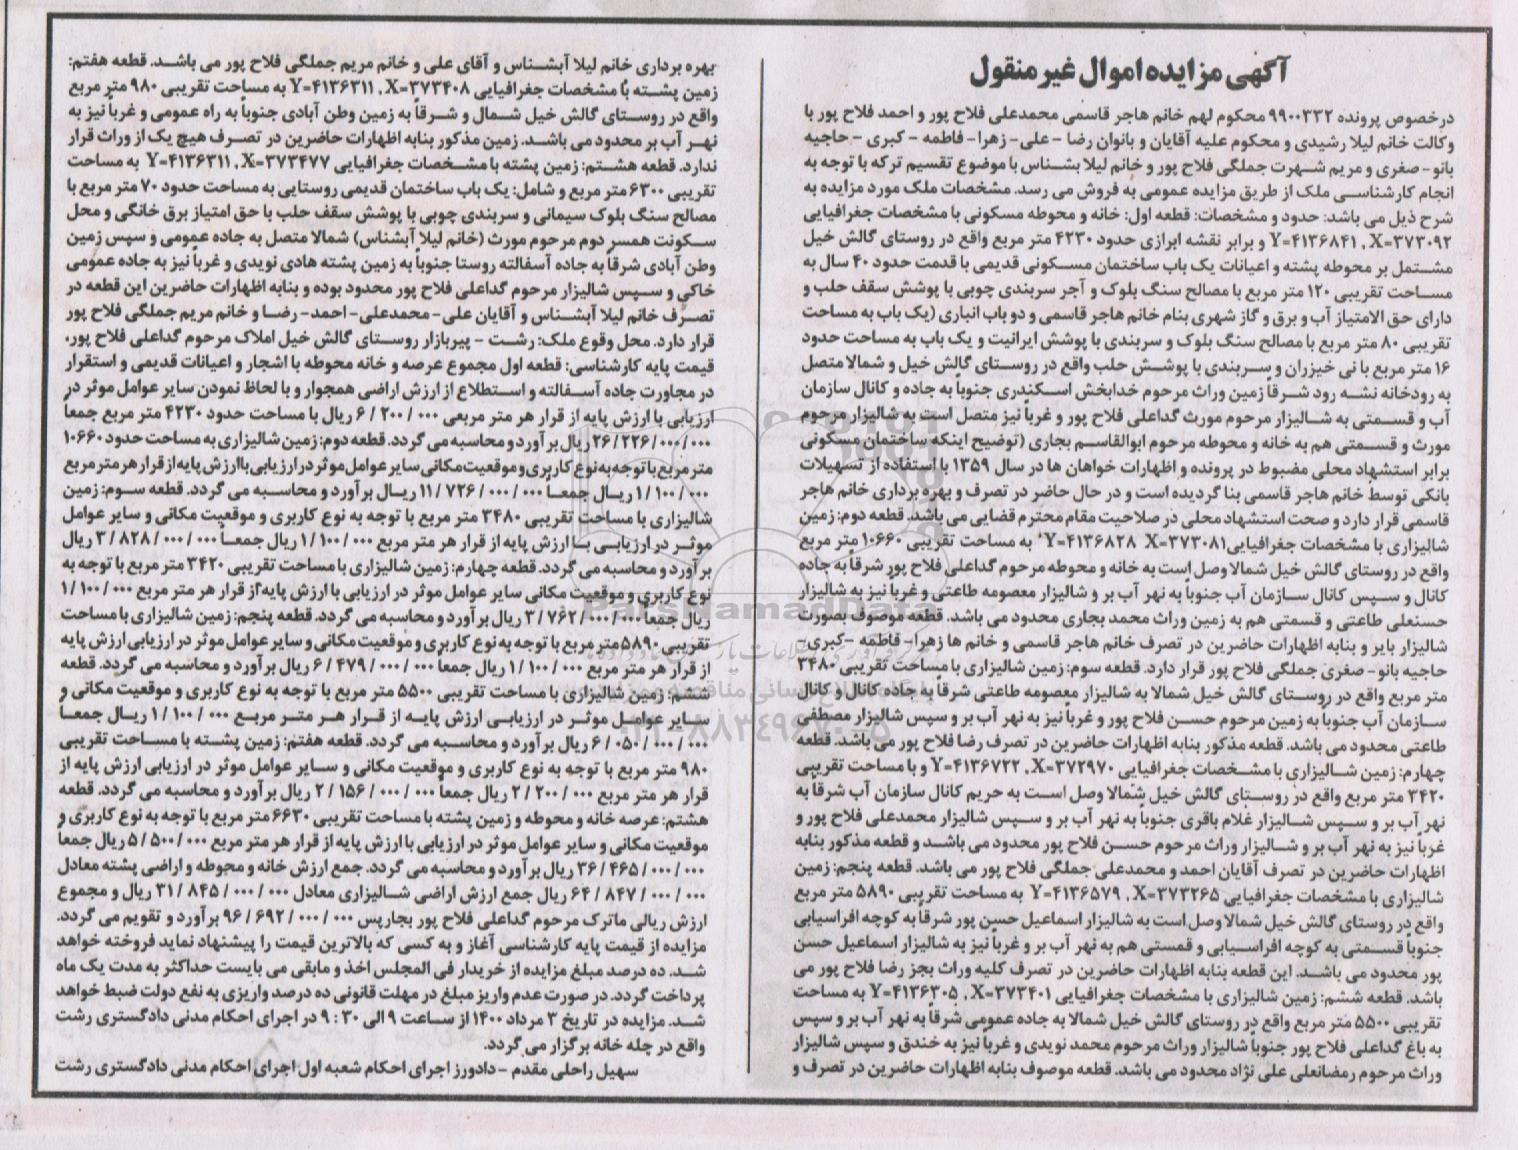 آگهی مزایده اموال غیر منقول
درخصوص پرونده ۹۹۰۰۳۳۲ محکوم لهم خانم هاجر قاسمی محمدعلی فلاح پور و احمد فلاح پور با
وکالت خانم لیلا رشیدی و محکوم علیه آقایان و بانوان رضا - علی - زهرا- فاطمه - کبری - حاجیه
بانو - صغری و مریم شهرت جملگی فلاح پور و خانم لیلا بشناس با موضوع تقسیم ترکه با توجه به
انجام کارشناسی ملک از طریق مزایده عمومی به فروش می رسد. مشخصات ملک مورد مزایده به
شرح ذیل می باشد: حدود و مشخصات: قطعه اول: خانه و محوطه مسکونی با مشخصات جغرافیایی
Y=۴۱۳۶۸۴۱ , X=۳۷۳۰۹۲ و برابر نقشه ابرازی حدود ۴۲۳۰ متر مربع واقع در روستای گالش خیل
مشتمل بر محوطه پشته و اعیانات یک باب ساختمان مسکونی قدیمی با قدمت حدود ۴۰ سال به
مساحت تقریبی ۱۲۰ متر مربع با مصالح سنگ بلوک و آجر سربندی چوبی با پوشش سقف حلب و
دارای حق الامتیاز آب و برق و گاز شهری بنام خانم هاجر قاسمی و دو باب انباری (یک باب به مساحت
تقریبی ۸۰ متر مربع با مصالح سنگ بلوک و سربندی با پوشش ایرانیت و یک باب به مساحت حدود
۱۶ متر مربع با نی خیزران و سربندی با پوشش حلب واقع در روستای گالش خیل و شمالا متصل
به رودخانه نشه رود شرقاً زمین وراث مرحوم خدابخش اسکندری جنوباً به جاده و کانال سازمان
آب و قسمتی به شالیزار مرحوم مورث گداعلی فلاح پور و غرباً نیز متصل است به شالیزار مرحوم
مورث و قسمتی هم به خانه و محوطه مرحوم ابوالقاسم بجاری (توضیح اینکه ساختمان مسکونی
برابر استشهاد محلی مضبوط در پرونده و اظهارات خواهان ها در سال ۱۳۵۹ با استفاده از تسهیلات
بانکی توسط خانم هاجر قاسمی بنا گردیده است و در حال حاضر در تصرف و بهره برداری خانم هاجر
قاسمی قرار دارد و صحت استشهاد محلی در صلاحیت مقام محترم قضایی می باشد. قطعه دوم: زمین
شالیزاری با مشخصات جغرافیایی Y=۴۱۳۶۸۲۸ X=۳۷۳۰۸۱ به مساحت تقریبی ۱۰۶۶۰ متر مربع
واقع در روستای گالش خیل شمالا وصل است به خانه و محوطه مرحوم گداعلی فلاح پور شرقاً به جاده
کانال و سپس کانال سازمان آب جنوباً به نهر آب بر و شالیزار معصومه طاعتی و غرباً نیز به شالیزار
حسنعلی طاعتی و قسمتی هم به زمین وراث محمد بجاری محدود می باشد. قطعه موصوف بصورت
شالیزار بایر و بنابه اظهارات حاضرین در تصرف خانم هاجر قاسمی و خانم ها زهرا- فاطمه -کبری-
حاجیه بانو - صغری جملگی فلاح پور قرار دارد. قطعه سوم: زمین شالیزاری با مساحت تقریبی ۳۴۸۰
متر مربع واقع در روستای گالش خیل شمالا به شالیزار معصومه طاعتی شرقاً به جاده کانال و کانال
سازمان آب جنوباً به زمین مرحوم حسن فلاح پور و غرباً نیز به نهر آب بر و سپس شالیزار مصطفی
طاعتی محدود می باشد. قطعه مذکور بنابه اظهارات حاضرین در تصرف رضا فلاح پور می باشد. قطعه
چهارم: زمین شالیزاری با مشخصات جغرافیایی Y=۴۱۳۶۷۲۲ , X=۳۷۲۹۷۰ و با مساحت تقریبی
۳۴۲۰ متر مربع واقع در روستای گالش خیل شمالا وصل است به حریم کانال سازمان آب شرقاً به
نهر آب بر و سپس شالیزار غلام باقری جنوباً به نهر آب بر و سپس شالیزار محمدعلی فلاح پور و
غرباً نیز به نهر آب بر و شالیزار وراث مرحوم حسن فلاح پور محدود می باشد و قطعه مذکور بنابه
اظهارات حاضرین در تصرف آقایان احمد و محمدعلی جملگی فلاح پور می باشد. قطعه پنجم: زمین
شالیزاری با مشخصات جغرافیایی Y=۴۱۳۶۵۷۹ , X=۳۷۳۲۶۵ به مساحت تقریبی ۵۸۹۰ متر مربع
واقع در روستای گالش خیل شمالا وصل است به شالیزار اسماعیل حسن پور شرقاً به کوچه افراسیابی
جنوباً قسمتی به کوچه افراسیابی و قمستی هم به نهر آب بر و غرباً نیز به شالیزار اسماعیل حسن
پور محدود می باشد. این قطعه بنابه اظهارات حاضرین در تصرف کلیه وراث بجز رضا فلاح پور می
باشد. قطعه ششم: زمین شالیزاری با مشخصات جغرافیایی Y=۴۱۳۶۳۰۵ , X=۳۷۳۴۰۱ به مساحت
تقریبی ۵۵۰۰ متر مربع واقع در روستای گالش خیل شمالا به جاده عمومی شرقاً به نهر آب بر و سپس
به باغ گداعلی فلاح پور جنوباً شالیزار وراث مرحوم محمد نویدی و غرباً نیز به خندق و سپس شالیزار
وراث مرحوم رمضانعلی علی نژاد محدود می باشد. قطعه موصوف بنابه اظهارات حاضرین در تصرف و
بهره برداری خانم لیلا آبشناس و آقای علی و خانم مریم جملگی فلاح پور می باشد. قطعه هفتم:
زمین پشته با مشخصات جغرافیایی Y=۴۱۳۶۳۱۱ , X=۳۷۳۴۰۸ به مساحت تقریبی ۹۸۰ متر مربع
واقع در روستای گالش خیل شمال و شرقاً به زمین وطن آبادی جنوباً به راه عمومی و غرباً نیز به
نهر آب بر محدود می باشد. زمین مذکور بنابه اظهارات حاضرین در تصرف هیچ یک از وراث قرار
ندارد. قطعه هشتم: زمین پشته با مشخصات جغرافیایی Y=۴۱۳۶۳۱۱ , X=۳۷۳۴۷۷ به مساحت
تقریبی ۶۳۰۰ متر مربع و شامل: یک باب ساختمان قدیمی روستایی به مساحت حدود ۷۰ متر مربع با
مصالح سنگ بلوک سیمانی و سربندی چوبی با پوشش سقف حلب با حق امتیاز برق خانگی و محل
سکونت همسر دوم مرحوم مورث (خانم لیلا آبشناس) شمالا متصل به جاده عمومی و سپس زمین
وطن آبادی شرقاً به جاده آسفالته روستا جنوباً به زمین پشته هادی نویدی و غرباً نیز به جاده عمومی
خاکی و سپس شالیزار مرحوم گداعلی فلاح پور محدود بوده و بنابه اظهارات حاضرین این قطعه در
تصرف خانم لیلا آبشناس و آقایان علی - محمدعلی - احمد- رضا و خانم مریم جملگی فلاح پور
قرار دارد. محل وقوع ملک: رشت - پیربازار روستای گالش خیل املاک مرحوم گداعلی فلاح پور.
قیمت پایه کارشناسی: قطعه اول مجموع عرصه و خانه محوطه با اشجار و اعیانات قدیمی و استقرار
در مجاورت جاده آسفالته و استطلاع از ارزش اراضی همجوار و با لحاظ نمودن سایر عوامل موثر در
ارزیابی با ارزش پایه از قرار هر متر مربعی ۶/۲۰۰/۰۰۰ ریال با مساحت حدود ۴۲۳۰ متر مربع جمعاً
۲۶/۲۲۶/۰۰۰/۰۰۰ ریال برآورد و محاسبه می گردد. قطعه دوم: زمین شالیزاری به مساحت حدود ۱۰۶۶۰
متر مربع با توجه به نوع کاربری و موقعیت مکانی سایر عوامل موثر در ارزیابی با ارزش پایه از قرار هر متر مربع
۱/۱۰۰/۰۰۰ ریال جمعاً ۱۱/۷۲۶/۰۰۰/۰۰۰ ریال برآورد و محاسبه می گردد. قطعه سوم: زمین
شالیزاری با مساحت تقریبی ۳۴۸۰ متر مربع با توجه به نوع کاربری و موقعیت مکانی و سایر عوامل
موثر در ارزیابی با ارزش پایه از قرار هر متر مربع ۱/۱۰۰/۰۰۰ ریال جمعاً ۳/۸۲۸/۰۰۰/۰۰۰ ریال
برآورد و محاسبه می گردد. قطعه چهارم: زمین شالیزاری با مساحت تقریبی ۳۴۲۰ متر مربع با توجه به
نوع کاربری و موقعیت مکانی سایر عوامل موثر در ارزیابی با ارزش پایه از قرار هر متر مربع ۱/۱۰۰/۰۰۰
ریال جمعاً ۳/۷۶۲/۰۰۰/۰۰۰ ریال برآورد و محاسبه می گردد. قطعه پنجم: زمین شالیزاری با مساحت
تقریبی ۵۸۹۰ متر مربع با توجه به نوع کاربری و موقعیت مکانی و سایر عوامل موثر در ارزیابی ارزش پایه
از قرار هر متر مربع ۱/۱۰۰/۰۰۰ ریال جمعا ۶/۴۷۹/۰۰۰/۰۰۰ ریال برآورد و محاسبه می گردد. قطعه
ششم: زمین شالیزاری با مساحت تقریبی ۵۵۰۰ متر مربع با توجه به نوع کاربری و موقعیت مکانی و
سایر عوامل موثر در ارزیابی ارزش پایه از قرار هر متر مربع ۱/۱۰۰/۰۰۰ ریال جمعاً
۶/۰۵۰/۰۰۰/۰۰۰ ریال برآورد و محاسبه می گردد. قطعه هفتم: زمین پشته با مساحت تقریبی
۹۸۰ متر مربع با توجه به نوع کاربری و موقعیت مکانی و سایر عوامل موثر در ارزیابی ارزش پایه از
قرار هر متر مربع ۲/۲۰۰/۰۰۰ ریال جمعاً ۲/۱۵۶/۰۰۰/۰۰۰ ریال برآورد و محاسبه می گردد. قطعه
هشتم: عرصه خانه و محوطه و زمین پشته با مساحت تقریبی ۶۶۳۰ متر مربع با توجه به نوع کاربری و
موقعیت مکانی و سایر عوامل موثر در ارزیابی با ارزش پایه از قرار هر متر مربع ۵/۵۰۰/۰۰۰ ریال جمعاً
۳۶/۴۶۵/۰۰۰/۰۰۰ ریال برآورد و محاسبه می گردد. جمع ارزش خانه و محوطه و اراضی پشته معادل
۶۴/۸۴۷/۰۰۰/۰۰۰ ریال جمع ارزش اراضی شالیزاری معادل ۳۱/۸۴۵/۰۰۰/۰۰۰ ریال و مجموع
ارزش ریالی ماترک مرحوم گداعلی فلاح پور بجارپس ۹۶/۶۹۲/۰۰۰/۰۰۰ برآورد و تقویم می گردد.
مزایده از قیمت پایه کارشناسی آغاز و به کسی که بالاترین قیمت را پیشنهاد نماید فروخته خواهد
شد. ده درصد مبلغ مزایده از خریدار فی المجلس اخذ و مابقی می بایست حداکثر به مدت یک ماه
پرداخت گردد. در صورت عدم واریز مبلغ در مهلت قانونی ده درصد واریزی به نفع دولت ضبط خواهد
شد. مزایده در تاریخ ۳ مرداد ۱۴۰۰ از ساعت ۹ الی ۹:۳۰ در اجرای احکام مدنی دادگستری رشت
واقع در چله خانه برگزار می گردد.
سهیل راحلی مقدم - دادورز اجرای احکام شعبه اول اجرای احکام مدنی دادگستری رشت
ParsNamadData
۰۲۱-۸۸۳۴۹۶۷۰-۵